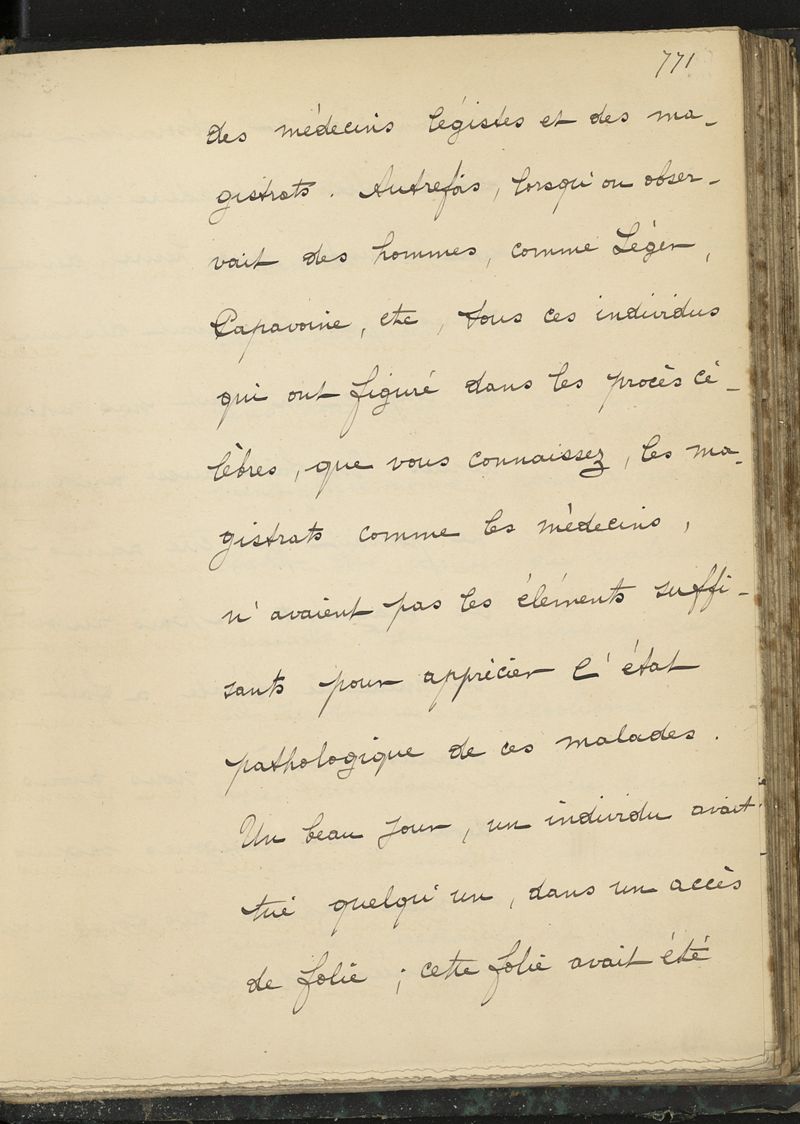 771
des médecins légistes et des ma-
gistrats. Autrefois, lorsqu'on obser-
vait des hommes, comme Léger,
Papavoine, etc, tous ces individus
qui ont figuré dans les procès cé-
lèbres, que vous connaissez, les ma-
gistrats comme les médecins,
n'avaient pas les éléments suffi-
sants pour apprécier l'état
pathologique de ces malades.
Un beau jour, un individu avait
tué quelqu'un, dans un accès
de folie ; cette folie avait été